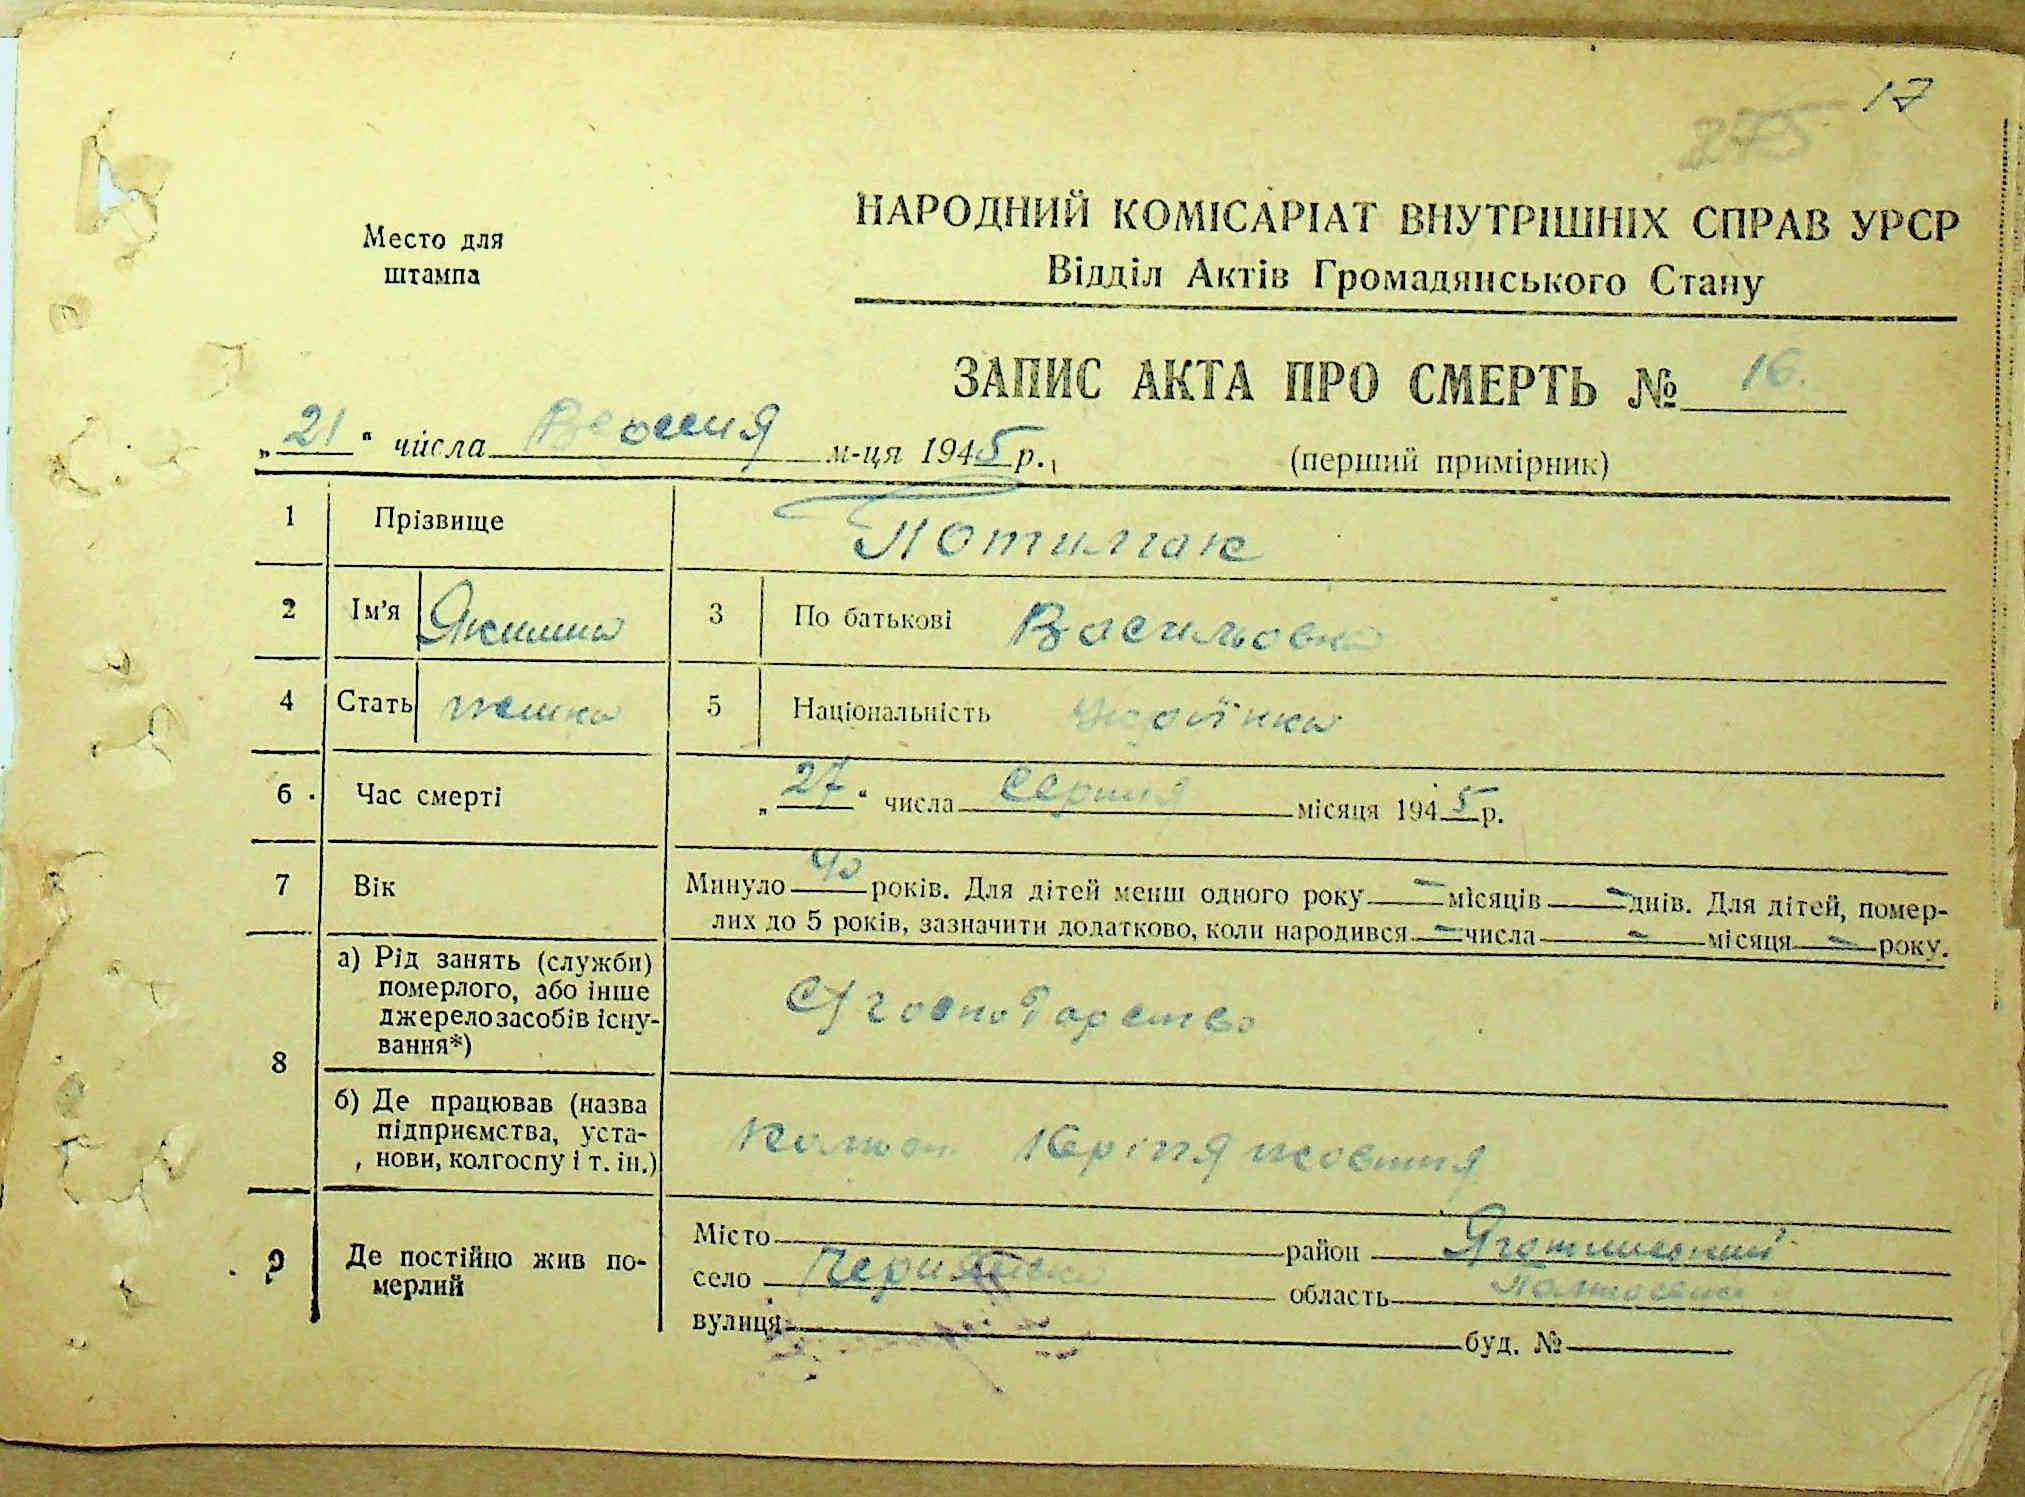 17
275
Место для
штампа
НАРОДНИЙ КОМІСАРІАТ ВНУТРІШНІХ СПРАВ УРСР
Відділ Актів Громадянського Стану
ЗАПИС АКТА ПРО СМЕРТЬ № 16.
„21“ числа Вересня м-ця 1945 р.
(перший примірник)
1 Прізвище Потимак
2 Ім'я 3 По батькові Васильовна
4 Стать жінка 5 Національність українка
6 Час смерті „27“ числа серпня місяця 1945 р.
7 Вік Минуло 40 років. Для дітей менш одного року — місяців — днів. Для дітей, помер-
лих до 5 років, зазначити додатково, коли народився — числа — місяця — року.
8 а) Рід занять (служби)
померлого, або інше
джерело засобів існу-
вання*)
С/господарство
б) Де працював (назва
підприємства, уста-
нови, колгоспу і т. ін.)
жовтня
9 Де постійно жив по-
мерлий
Місто район Яготинський
село область Полтавська
вулиця буд. №